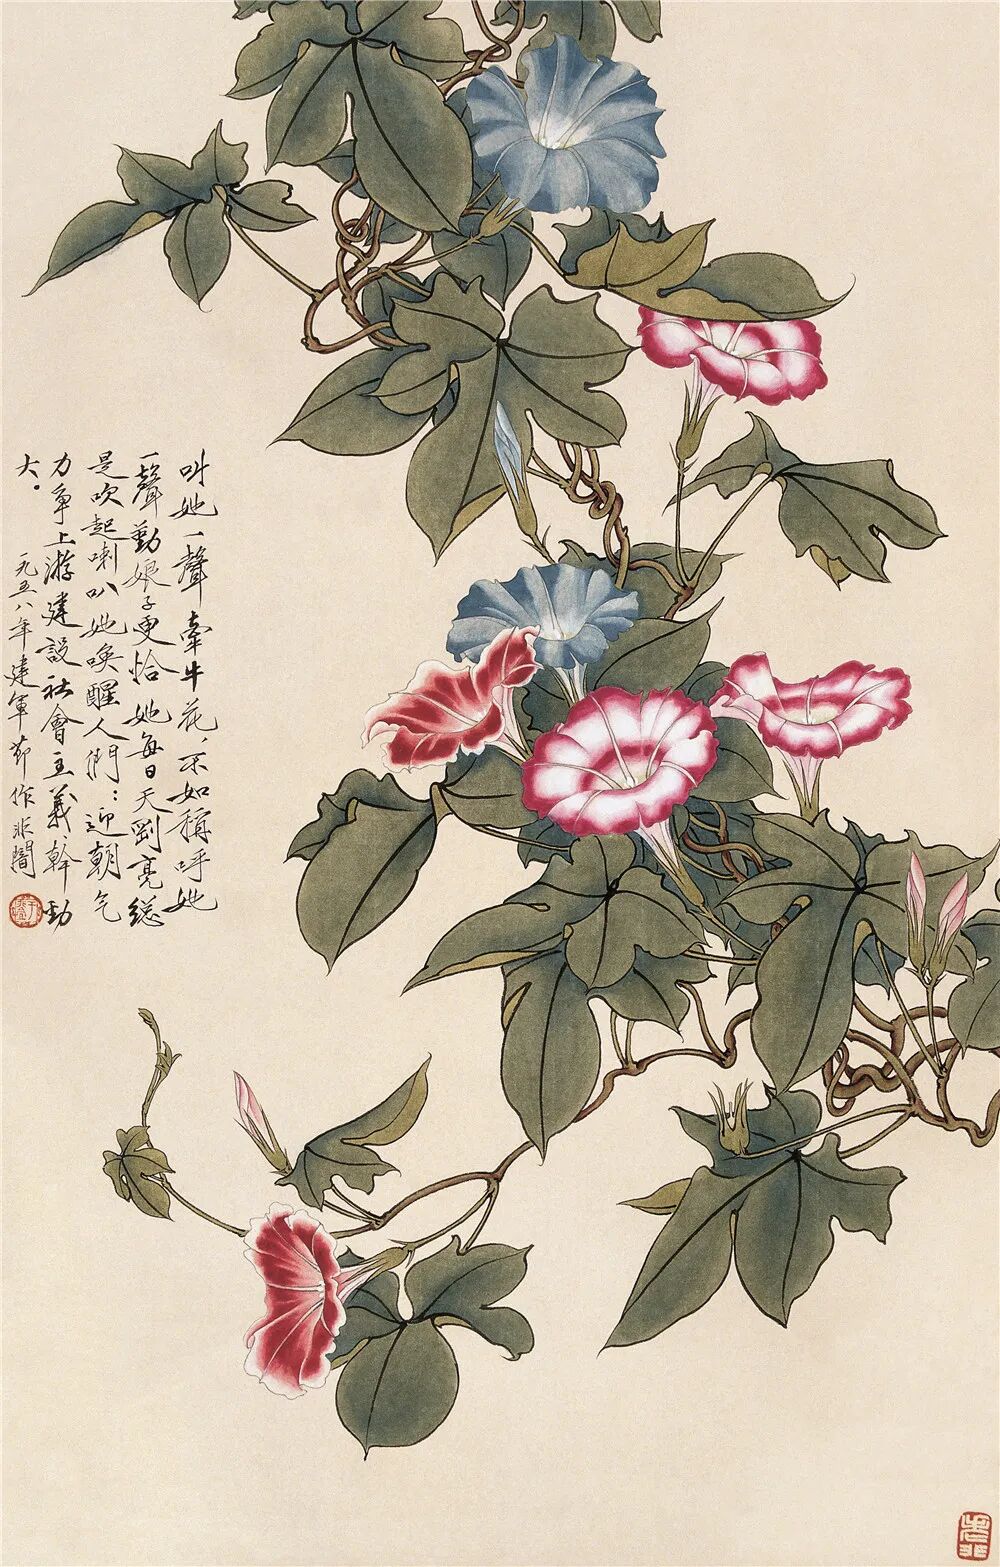 叫她一聲牽牛花、不如稱呼她
一聲勤娘子更恰她每日天剛亮總
是吹起喇叭她喚醒人們：迎朝气
力争上游建設社會主義幹勁
大。
一九五八年建軍節作非闇